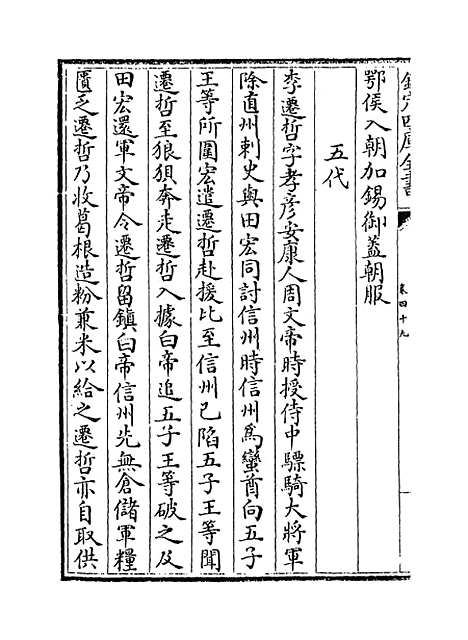 欽定四庫全書
卷四十九
鄂侯入朝加錫御蓋朝服
五代
李遷哲字孝彦安康人周文帝時授侍中驃騎大將軍
除直州刺史與田宏同討信州時信州為蠻酋向五子
王等所圍宏遣遷哲赴援比至信州已陷五子王等聞
遷哲至狼狽奔走遷哲入據白帝追五子王等破之及
田宏還軍文帝令遷哲留鎮白帝信州先無倉儲軍糧
匱乏遷哲乃收葛根造粉兼米以給之遷哲亦自取供